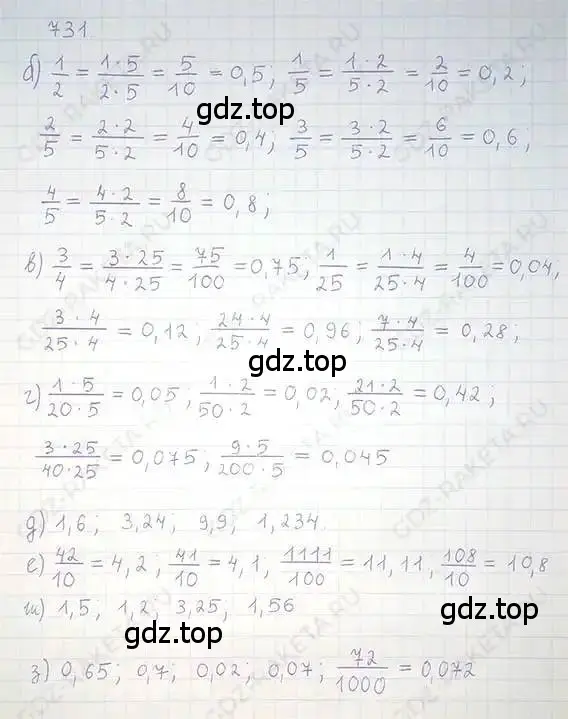 731.
б) 1/2 = 1·5/2·5 = 5/10 = 0,5; 1/5 = 1·2/5·2 = 2/10 = 0,2;
gdz.top
2/5 = 2·2/5·2 = 4/10 = 0,4; 3/5 = 3·2/5·2 = 6/10 = 0,6;
4/5 = 4·2/5·2 = 8/10 = 0,8;
в) 3/4 = 3·25/4·25 = 75/100 = 0,75; 1/25 = 1·4/25·4 = 4/100 = 0,04;
3·4/25·4 = 0,12; 24·4/25·4 = 0,96; 7·4/25·4 = 0,28;
gdz.top
г) 1·5/20·5 = 0,05; 1·2/50·2 = 0,02; 21·2/50·2 = 0,42;
3·25/40·25 = 0,075; 9·5/200·5 = 0,045
д) 1,6; 3,24; 9,9; 1,234.
е) 42/10 = 4,2; 41/10 = 4,1; 1111/100 = 11,11, 108/10 = 10,8
ж) 1,5; 1,2; 3,25; 1,56
gdz.top
gdz.top
з) 0,65; 0,7; 0,02; 0,07; 72/1000 = 0,072